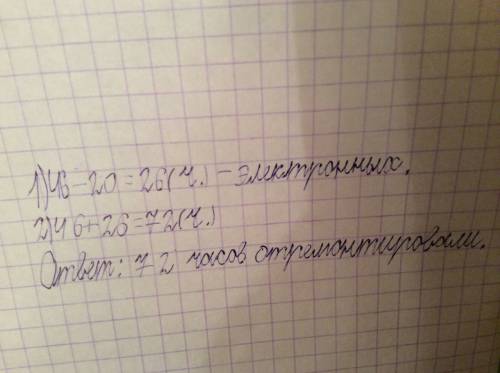 1) 46 - 20 = 26 (ч.) - электронных.
2) 46 + 26 = 72 (ч.)
Ответ: 72 часов отремонтировали.